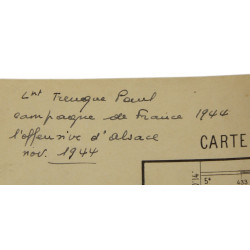 Lnt Trenque Paul
campagne de France 1944
l'offensive d'Alsace
nov. 1944
CARTE
5°
433